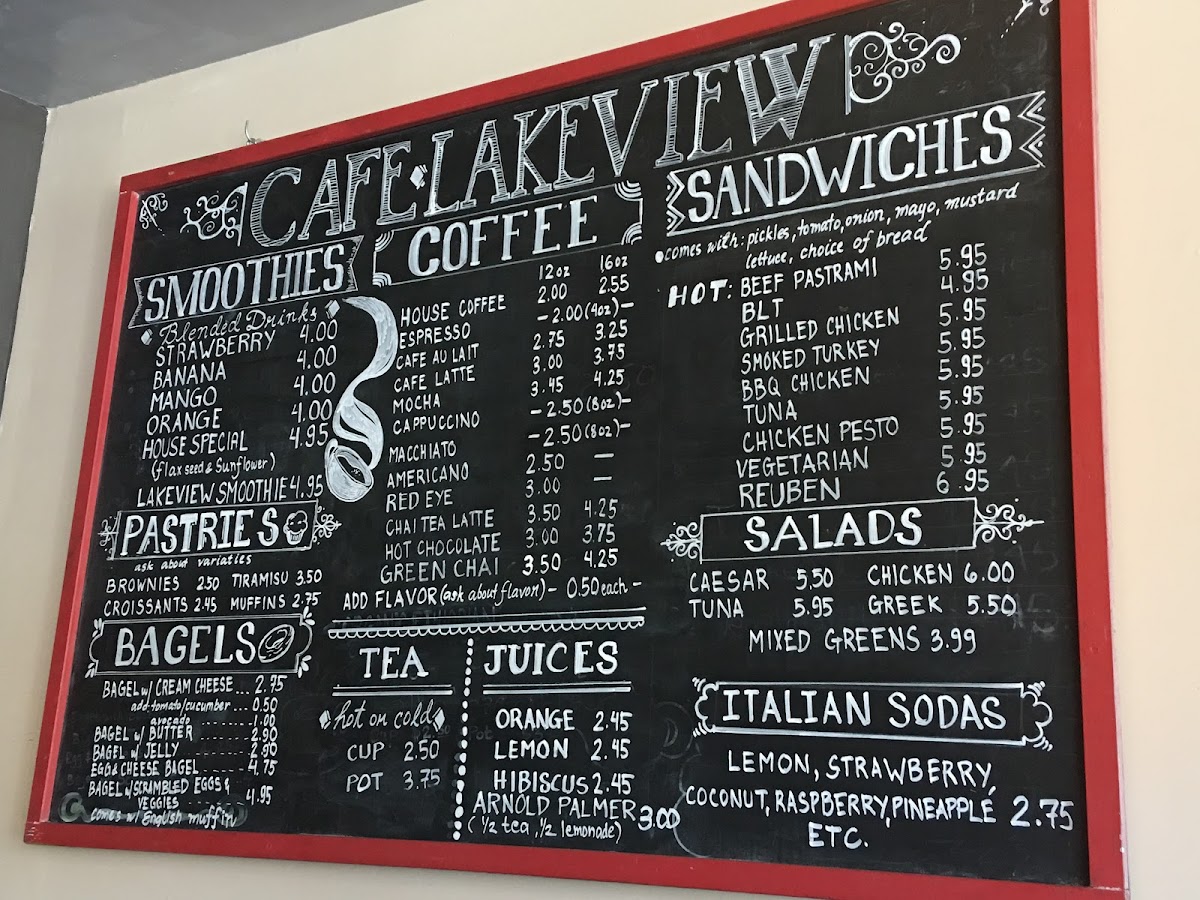 CAFE LAKEVIEW
SMOOTHIES
Blended Drinks
STRAWBERRY 4.00
BANANA 4.00
MANGO 4.00
ORANGE 4.00
HOUSE SPECIAL 4.95
(flax seed & Sunflower)
LAKEVIEW SMOOTHIE 4.95
PASTRIES
ask about varaties
BROWNIES 2.50 TIRAMISU 3.50
CROISSANTS 2.45 MUFFINS 2.75
BAGELS
BAGEL w/ CREAM CHEESE ... 2.75
add tomato/cucumber ... 0.50
avocado -------- 1.00
BAGEL w/ BUTTER -------- 2.90
BAGEL w/ JELLY -------- 2.90
EGG & CHEESE BAGEL ------ 4.75
BAGEL w/ SCRAMBLED EGGS &
VEGGIES ------ 4.95
comes w/ English muffin
COFFEE
12oz 16oz
HOUSE COFFEE 2.00 2.55
ESPRESSO -2.00 (4oz)-
CAFE AU LAIT 2.75 3.25
CAFE LATTE 3.00 3.75
MOCHA 3.45 4.25
CAPPUCCINO -2.50 (8oz)-
MACCHIATO -2.50 (8oz)-
AMERICANO 2.50 —
RED EYE 3.00 —
CHAI TEA LATTE 3.50 4.25
HOT CHOCOLATE 3.00 3.75
GREEN CHAI 3.50 4.25
ADD FLAVOR (ask about flavor) - 0.50 each -
TEA
hot or cold
CUP 2.50
POT 3.75
JUICES
ORANGE 2.45
LEMON 2.45
HIBISCUS 2.45
ARNOLD PALMER 3.00
(1/2 tea, 1/2 lemonade)
SANDWICHES
comes with: pickles, tomato, onion, mayo, mustard
lettuce, choice of bread
HOT: BEEF PASTRAMI 5.95
BLT 4.95
GRILLED CHICKEN 5.95
SMOKED TURKEY 5.95
BBQ CHICKEN 5.95
TUNA 5.95
CHICKEN PESTO 5.95
VEGETARIAN 5.95
REUBEN 6.95
SALADS
CAESAR 5.50 CHICKEN 6.00
TUNA 5.95 GREEK 5.50
MIXED GREENS 3.99
ITALIAN SODAS
LEMON, STRAWBERRY,
COCONUT, RASPBERRY, PINEAPPLE 2.75
ETC.